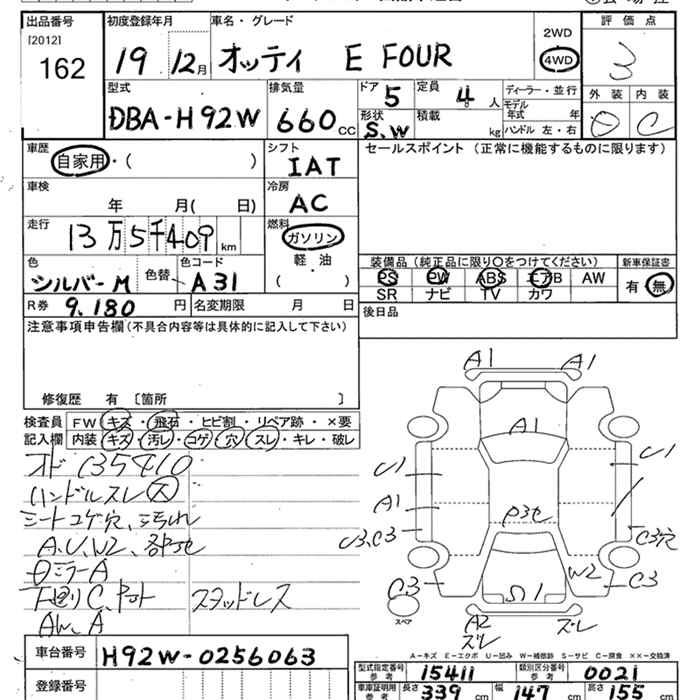 出品番号 初度登録年月 車名・グレード 2WD 評価点
[2012] 162 19 12月 オッティ E FOUR 4WD 3
型式 排気量 ドア 5 定員 4 人 ディーラー・並行 外装 内装
DBA-H92W 660 CC 形状 S.W 積載 kg モデル年式 年 C
ハンドル 左・右
車歴 シフト セールスポイント (正常に機能するものに限ります)
自家用・( ) IAT
車検 冷房
年 月( 日) AC
走行 燃料
13万5千409 km ガソリン
軽油
( )
色 色替 色コード 装備品(純正品に限り○をつけてください) 新車保証書
シルバーM A31 PS PW ABS エアB AW 有 無
SR ナビ TV カワ
R券 9.180 円 名変期限 月 日 後日品
注意事項申告欄(不具合内容等は具体的に記入して下さい)
修復歴 有 〔箇所 〕
検査員 FW キズ・飛石・ヒビ割・リペア跡・×要
記入欄 内装 キズ・汚レ・コゲ・穴・スレ・キレ・破レ
オド 135410
ハンドルスレ 大
シートコゲ穴、汚れ
A.U.W2、各部
ミラーA
下廻りC、スタッドレス
AW、A
A1 A1
A1
U1 U1
A1
U3.C3 C3穴
W2
C3 C3
スペア S1
A2 ズレ ズレ
A-キズ E-エクボ U-凹み W-補修跡 S-サビ C-腐食 ××-交換済
車台番号 H92W-0256063
型式指定番号 参考 15411 類別区分番号 参考 0021
登録番号
車庫証明用 参考 長さ 339 cm 幅 147 cm 高さ 155 cm